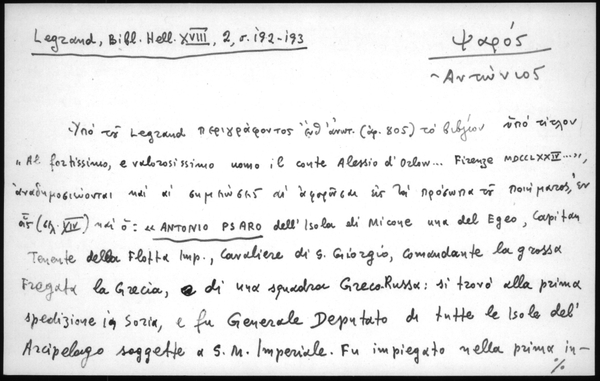 Legrand, Bibl. Hell. XVIII, 2, σ. 192-193
Ψαρός
~Αντώνιος
Ὑπό τοῦ Legrand περιγράφοντος (ἀρ. 805) τό βιβλίον ὑπό τίτλον
„Al fortissimo, e valorosissimo uomo il conte Alessio d'Orlow... Firenze MDCCLXXIV...",
ἀναδημοσιεύονται καί αἱ σημειώσεις αἱ ἀφορῶσαι εἰς τά πρόσωπα τοῦ ποιήματος, ἐν
αἷς (σελ. XIV) καί ὁ: « ANTONIO PSARO dell'Isola di Micone una del Egeo, Capitan
Tenente della Flotta Imp., Cavaliere di S. Giorgio, comandante la grossa
Fregata la Grecia, e di una squadra Greco-Russa: si trovò alla prima
spedizione in Soria, e fu Generale Deputato di tutte le Isole del'
Arcipelago soggette a S. M. Imperiale. Fu impiegato nella prima in-
%